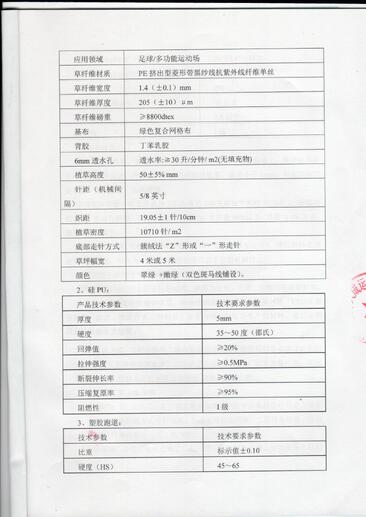 应用领域 足球/多功能运动场
草纤维材质 PE 挤出型菱形带黑纱线抗紫外线纤维单丝
草纤维宽度 1.4（±0.1）mm
草纤维厚度 205（±10）μm
草纤维磅重 ≥8800dtex
基布 绿色复合网格布
背胶 丁苯乳胶
6mm 透水孔 透水率:≧30 升/分钟/ m2(无填充物)
植草高度 50±5% mm
针距（机械间隔） 5/8 英寸
织距 19.05±1 针/10cm
植草密度 10710 针/ m2
底部走针方式 簇绒法“Z”形或“一”形走针
草坪幅宽 4 米或 5 米
颜色 翠绿 +嫩绿（双色斑马线铺设）。
2、硅 PU：
产品技术参数 技术要求参数
厚度 5mm
硬度 35～50 度（邵氏）
回弹值 ≥20%
拉伸强度 ≥0.5MPa
断裂伸长率 ≥90%
压缩复原率 ≥95%
阻燃性 1 级
3、塑胶跑道：
技术参数 技术要求参数
比重 标示值±0.10
硬度（HS） 45～65